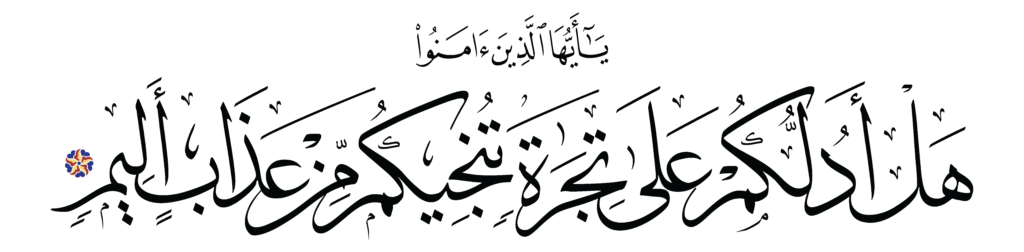 يَـٰٓأَيُّهَا ٱلَّذِينَ ءَامَنُوا۟
هَلْ أَدُلُّكُمْ عَلَىٰ تِجَـٰرَةٍ تُنجِيكُم مِّنْ عَذَابٍ أَلِيمٍ